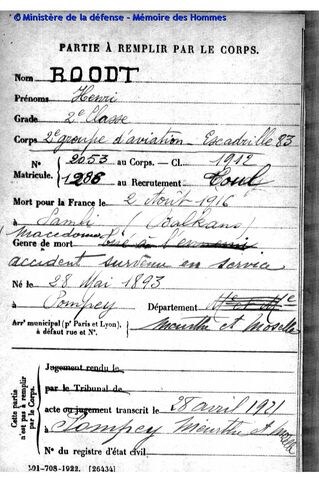 © Ministère de la défense - Mémoire des Hommes
PARTIE À REMPLIR PAR LE CORPS.
Nom ROODT
Prénoms Henri
Grade 2e Classe
Corps 2e groupe d'aviation - Escadrille 83
N° 2053 au Corps. — Cl. 1912
Matricule. 1286 au Recrutement Toul
Mort pour la France le 2 Août 1916
à Samli (Balkans)
Macedoine
Genre de mort tué à l'ennemi
accident survenu en service
Né le 28 Mai 1893
à Pompey Département Mthe et Mlle
Arrt municipal (pr Paris et Lyon), à défaut rue et N°. Meurthe et Moselle
Cette partie n'est pas à remplir par le Corps.
Jugement rendu le
par le Tribunal de
acte ou jugement transcrit le 28 avril 1921
à Pompey Meurthe et Moselle
N° du registre d'état civil
101-708-1922. [26434]